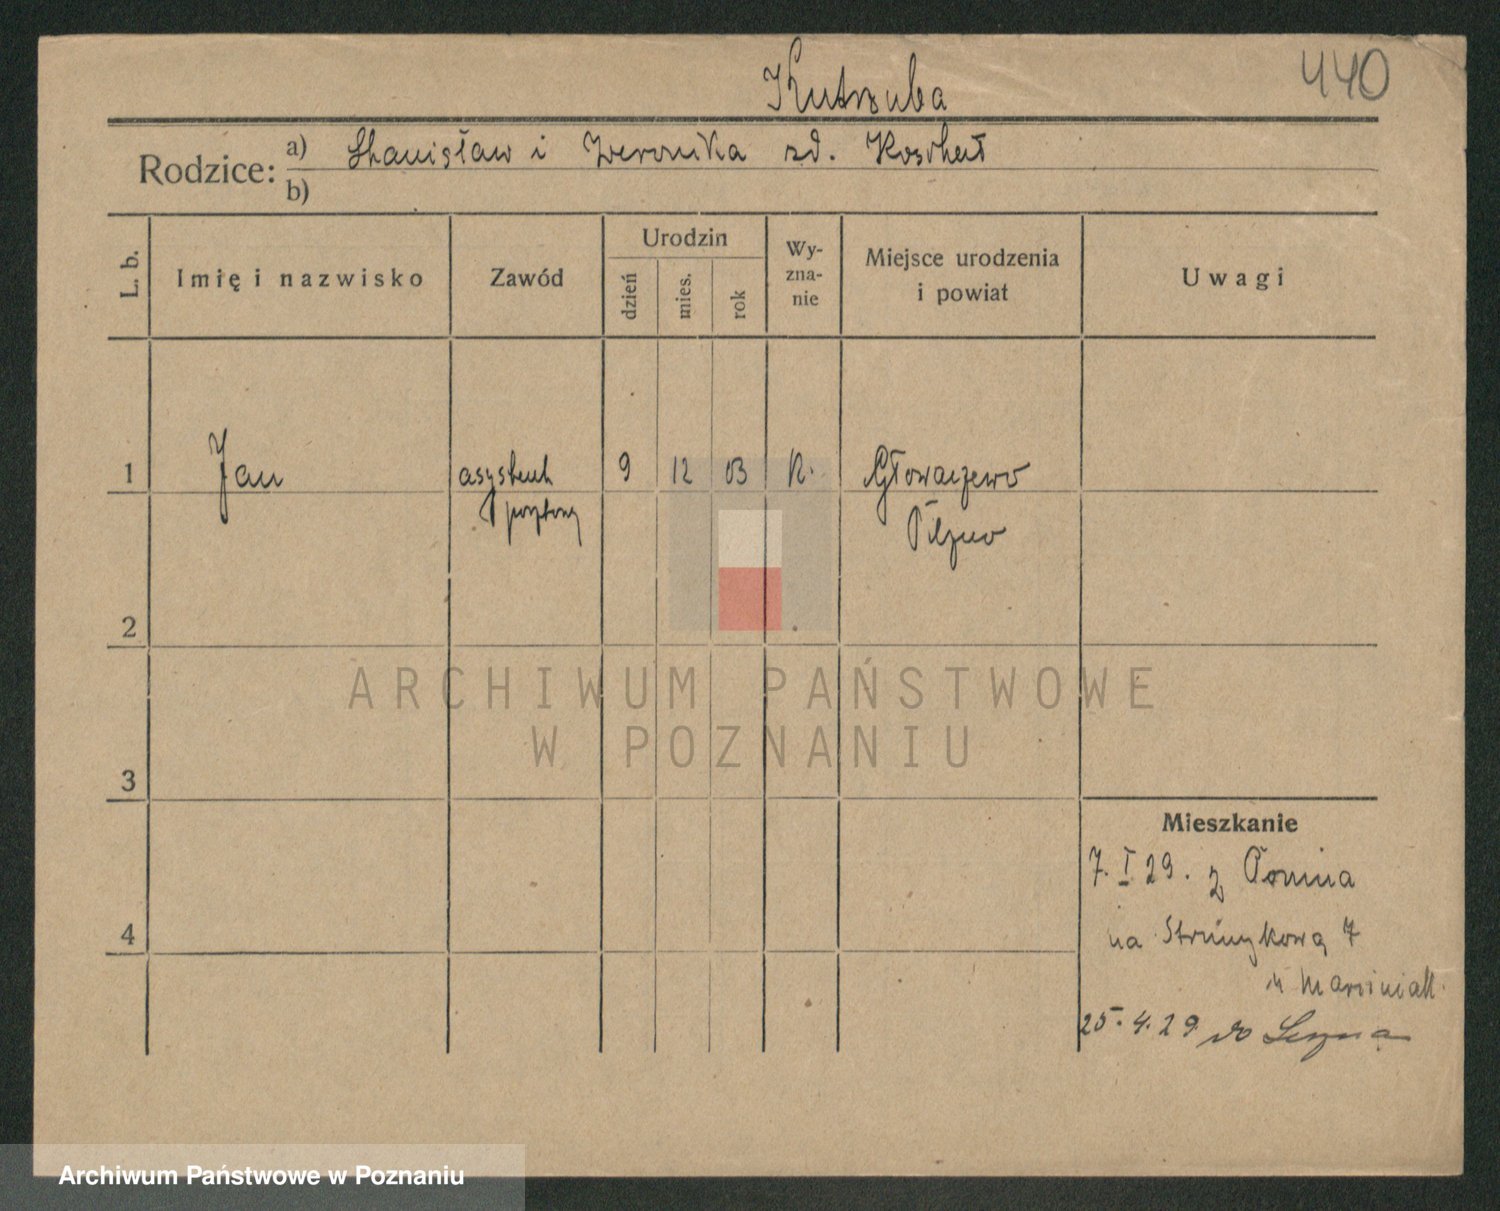 440
Kutzuba
Rodzice: a) Stanisław i Weronika zd.
b)
L. b.
Imię i nazwisko
Zawód
Urodzin
dzień
mies.
rok
Wy-
zna-
nie
Miejsce urodzenia
i powiat
Uwagi
1 Jan asystent 9 12 03 K. Głowaczewo
pocztowy Pilzno
2
3
4
Mieszkanie
7. I 29. z
na Strumykową 7
u Marciniak
25. 4. 29 do
ARCHIWUM PAŃSTWOWE
W POZNANIU
Archiwum Państwowe w Poznaniu